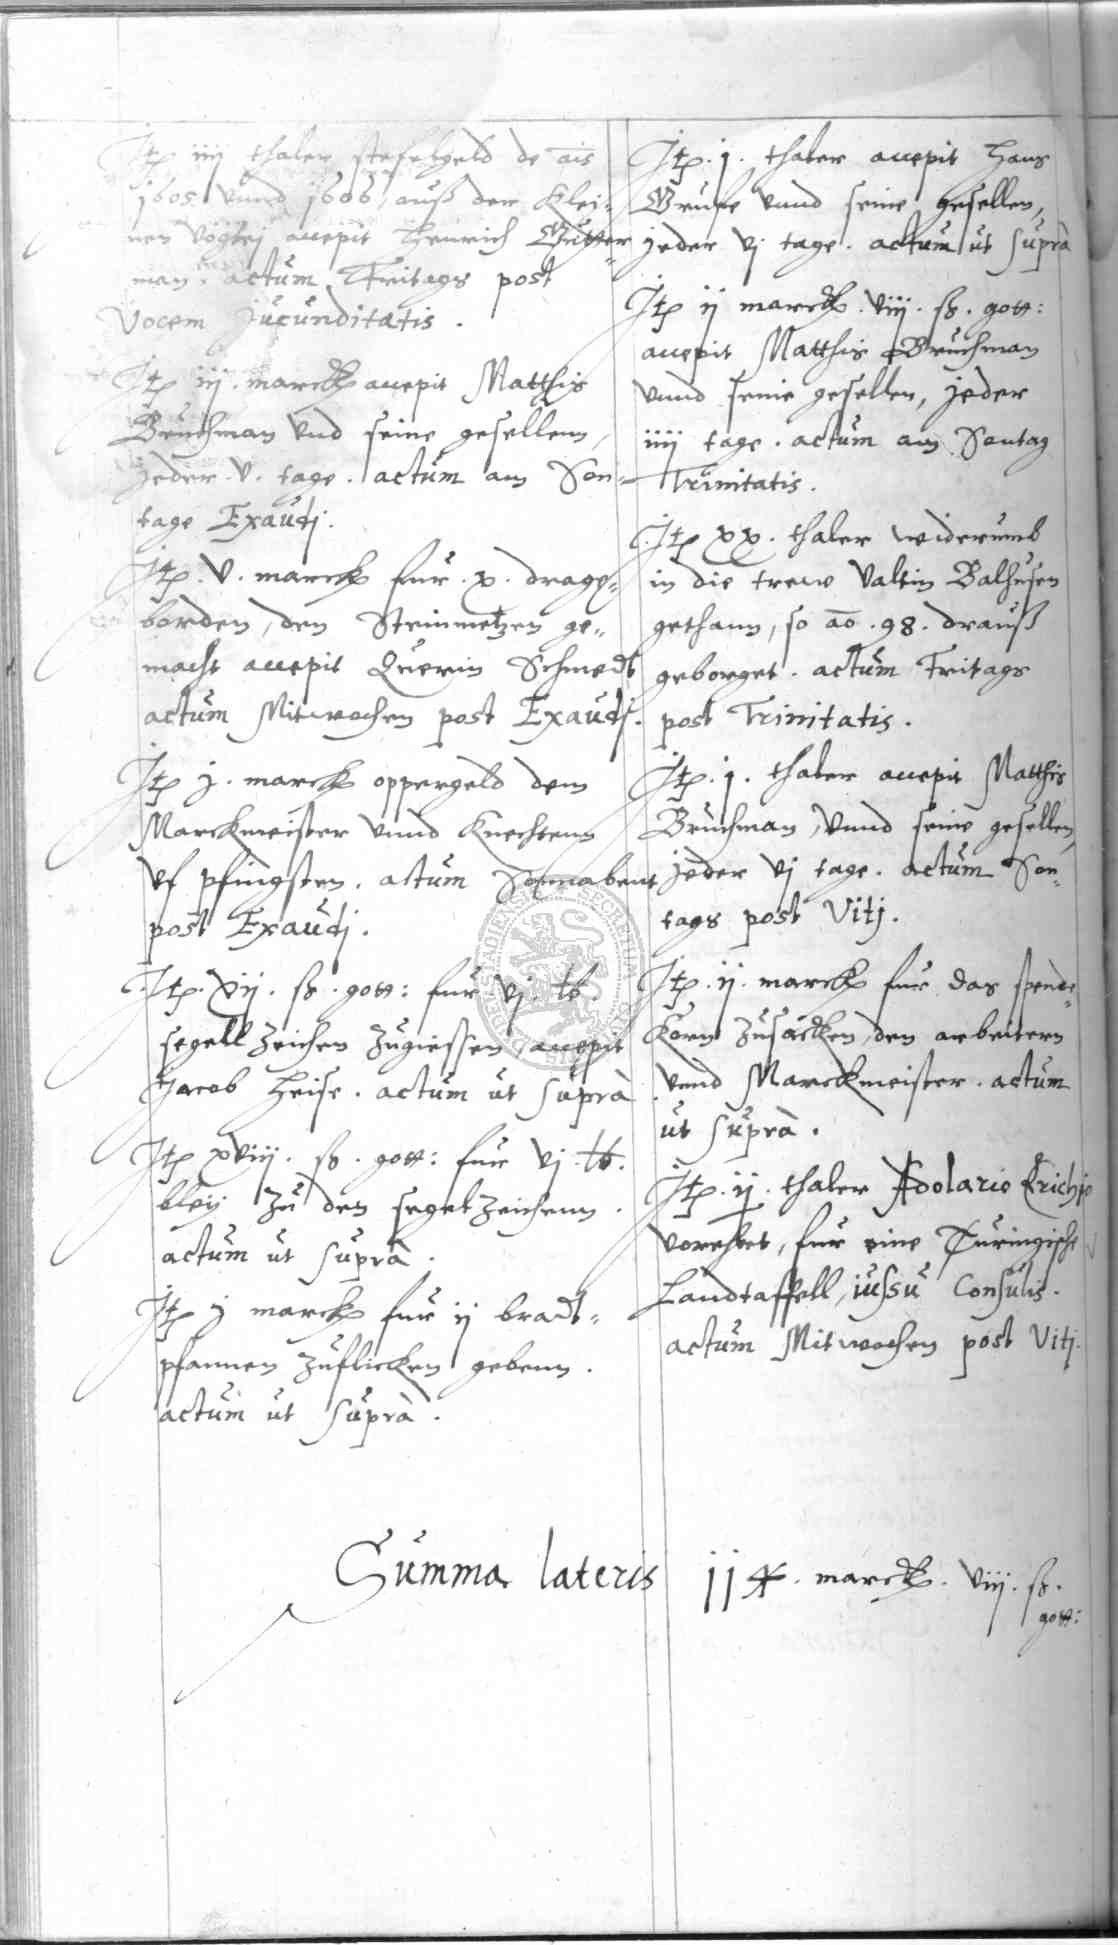 Itp iiij thaler stofelgeld de ais
1605 vnnd 1606, auß der Klei-
nen Vogtej accepit Henrich Gutter-
man. actum Fritags post
Vocem Jucunditatis.
Itp iij. marck accepit Matthis
Bruchman vnd seine gesellenn,
jeder .v. tage. actum am Son-
tage Exaudj.
Itp. v. marck fur .x. drage-
borden, den Steinmetzen ge-
macht accepit Querin Schmedt
actum Mitwochen post Exaudj.
Itp j. marck oppergeld dem
Marckmeister vnnd Knechtenn
vf pfingsten. actum Sonnabent
post Exaudj.
Itp. xij. ß. gott: fur .vj. tb.
segell Zeichen Zugiessen, accepit
Jacob Heise. actum ut suprà
Itp xviij. ß. gott: fur vj. tb.
bleij Zu den segel Zeichenn.
actum ut suprà.
Itp j marck fur ij bradt-
pfannen Zuflicken gebenn.
actum ut suprà.
Itp. j. thaler accepit Hans
Grube vnnd seine gesellen,
jeder vj tage. actum ut suprà
Itp ij marck. viij. ß. gott:
accepit Matthis Bruchman
vnnd seine gesellen, jeder
iiij tage. actum am Sontag
Trinitatis.
Itp xx. thaler widerumb
in die trewe Valtin Balhusen
gethann, so ao .98. drauß
geborget. actum Fritags
post Trinitatis.
Itp. j. thaler accepit Matthis
Bruchman, vnnd seine gesellen,
jeder vj tage. actum Son-
tags post Vitj.
Itp. ij. marck fur das spende-
Korn Zusäcken, den arbeitern
vnnd Marckmeister. actum
ut suprà.
Itp. ij. thaler Adolario Erichio
vorehret, fur eine Turingische
Landtaffell, iussu Consulis.
actum Mitwochen post Vitj.
Summa lateris 114. marck. viij. ß.
gott: